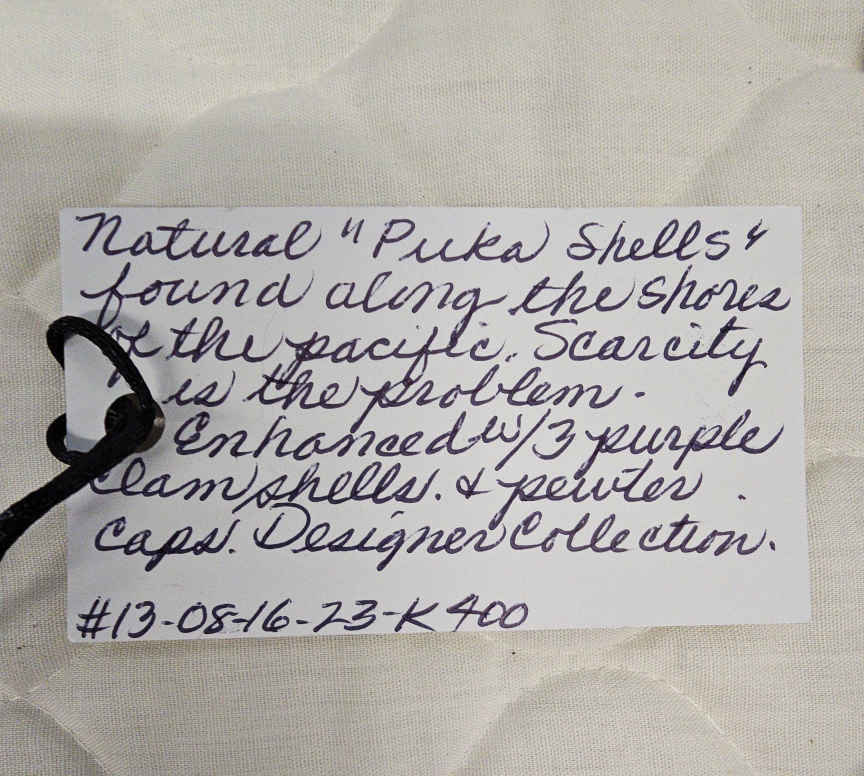 Natural "Puka Shells"
found along the shores
of the pacific. Scarcity
is the problem.
Enhanced w/3 purple
clam shells. & pewter.
Caps. Designer Collection.
#13-08-16-23-K400